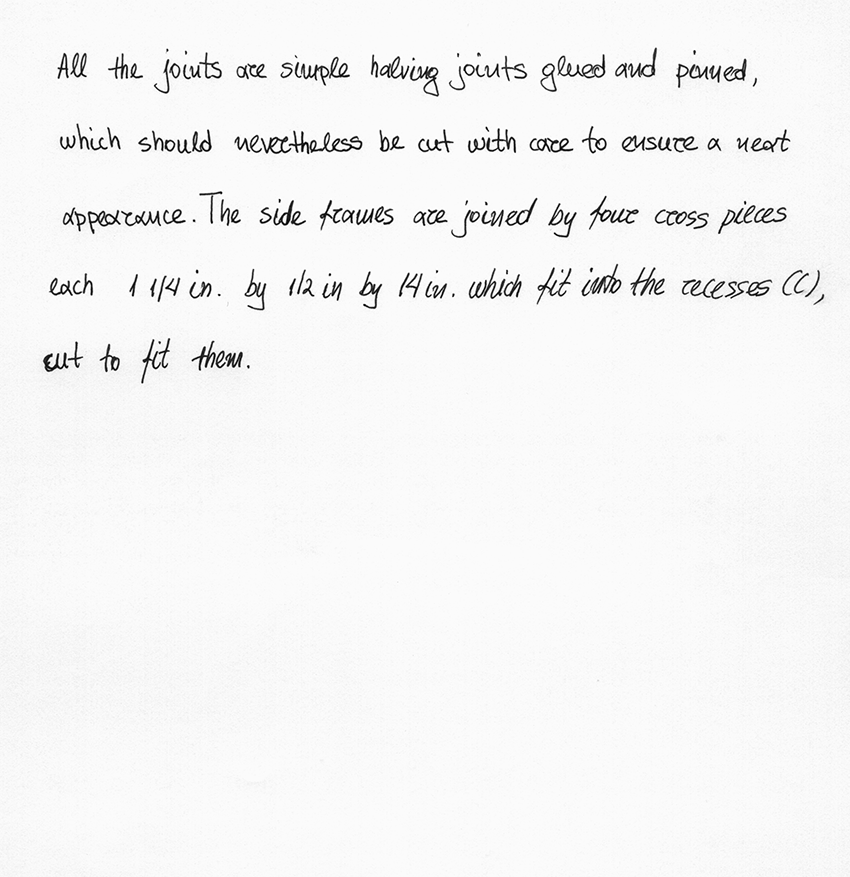 All the joints are simple halving joints glued and pinned,
which should nevertheless be cut with care to ensure a neat
appearance. The side frames are joined by four cross pieces
each 1 1/4 in. by 1/2 in by 14 in. which fit into the recesses (C),
cut to fit them.